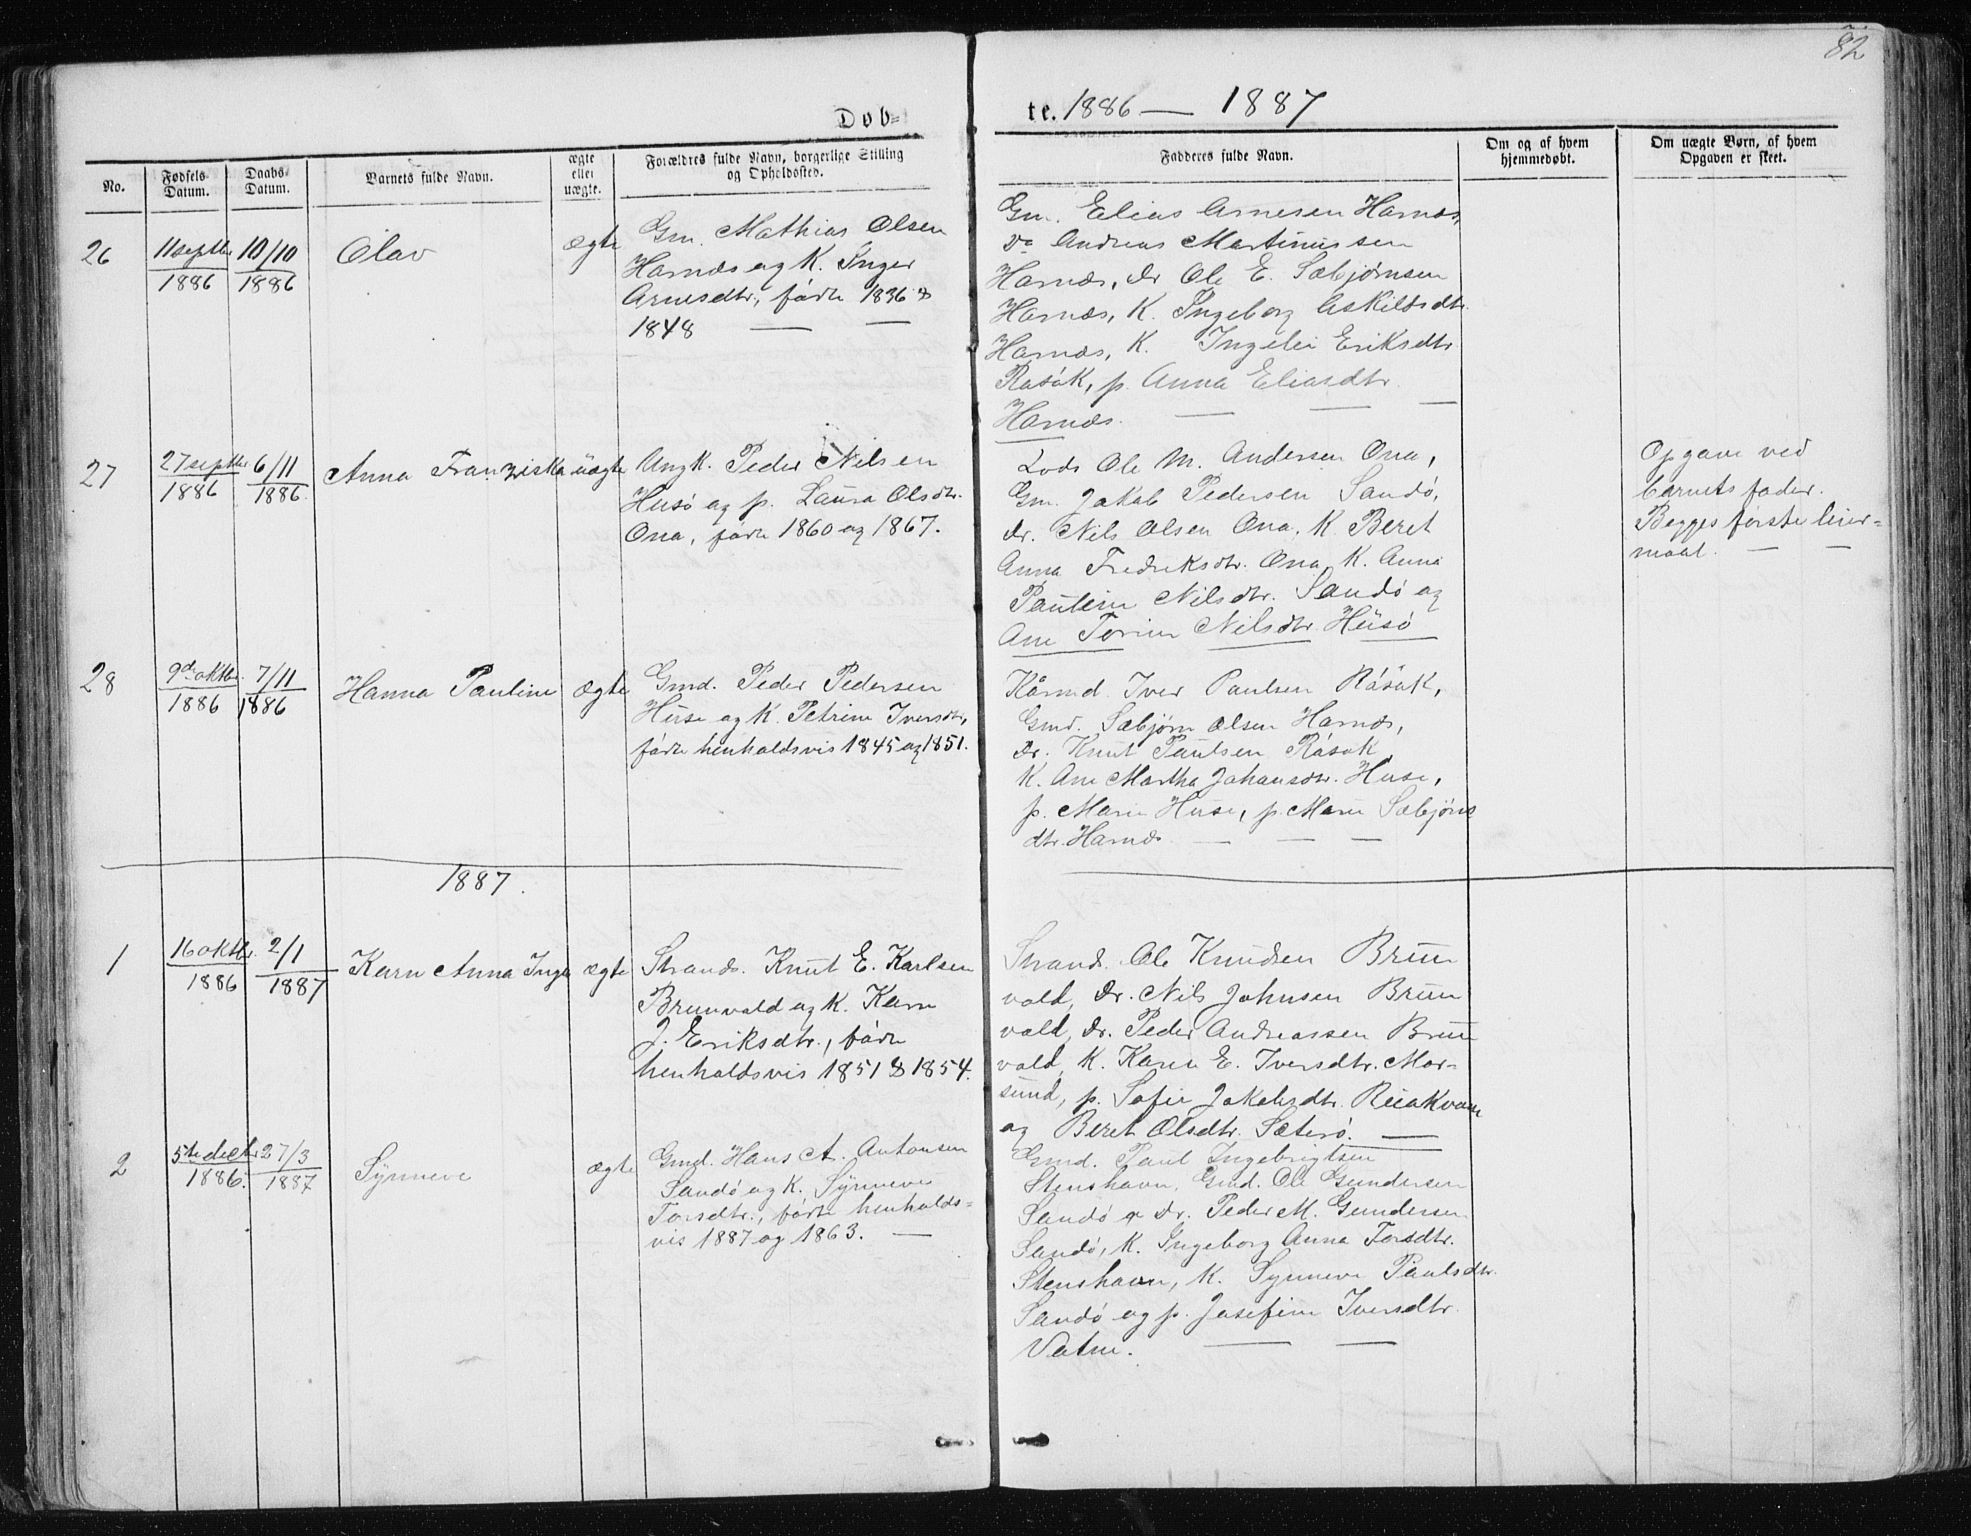 82
Døb=
te. 1886 — 1887
No.
Fødsels Datum.
Daabs Datum.
Barnets fulde Navn.
ægte eller uægte.
Forældres fulde Navn, borgerlige Stilling
og Opholdssted.
Fadderes fulde Navn.
Om og af hvem
hjemmedøbt.
Om uægte Børn, af hvem
Opgaven er skeet.
26
11 septbr
1886
10/10
1886
Olav
ægte
Gm. Mathias Olsen
Harnæs og K. Inger
Arnesdtr., fødte 1836 &
1848 — —
Gm. Elias Arnesen Harnæs,
do Andreas Martinussen
Harnæs, dr Ole E. Sæbjørnsen
Harnæs, K. Ingeborg Askildsdtr.
Harnæs, K. Ingelei Eriksdtr.
Rasök, p. Anna Eliasdtr.
Harnæs. — — —
27
27 septbr
1886
6/11
1886.
Anna Franziska
uægte
Ungk. Peder Nilsen
Husö og p. Laura Olsdtr.
Ona, fødte 1860 og 1867.
Lods Ole M. Andersen Ona,
Gm. Jakob Pedersen Sandö,
dr. Nils Olsen Ona, K. Beret
Anna Fredriksdtr. Ona, K. Anna
Pauline Nilsdtr. Sandö og
Ane Torine Nilsdtr. Husö
Opgave ved
barnets fader.
Begges første leier=
maal. — —
28
9de oktbr.
1886
7/11
1886
Hanna Pauline
ægte
Gmd. Peder Pedersen
Huse og K. Petrine Iversdtr,
fødte henholdsvis 1845 og 1851.
Kårmd. Iver Paulsen Råsök,
Gmd. Sæbjørn Olsen Harnæs,
Dr. Knut Paulsen Råsök
K. Ane Martha Johansdtr. Huse,
p. Marie Huse, p. Marie Sæbjörns
dtr. Harnæs — — —
1887.
1
16 oktbr.
1886
2/1
1887
Karn Anna Inga
ægte
Strands. Knut E. Karlsen
Brunvold og K. Karn
J. Eriksdtr., fødte
henholdsvis 1851 & 1854.
Strands. Ole Knudsen Brun
vold, Dr. Nils Johnsen Brun
vold, Dr. Peder Andreassen Brun
vold, K. Karen E. Iversdtr. Mor-
sund, p. Sofie Jakobsdtr. Rúakvam
og Beret Olsdtr. Sæterö. —
2
5te decbr
1886.
27/3
1887
Synneve
ægte
Gmd. Hans A. Antonsen
Sandö og K. Synneve
Torsdtr., fødte henholds=
vis 1887 og 1863. —
Gmd. Paul Ingebrigtsen
Stenshavn, Gmd. Ole Gundersen
Sandö & Dr. Peder M. Gundersen
Sandö, K. Ingeborg Anna Torsdtr.
Stenshavn, K. Synneve Paulsdtr.
Sandö og p. Josefine Iversdtr.
Vatne. — —